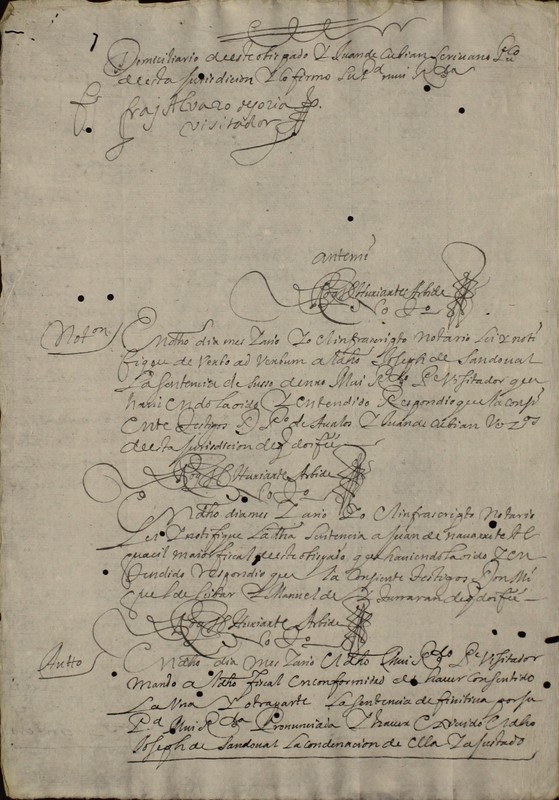 Domiciliario deeste obispado Y Juan de Cubian Scrivano
de esta Jurisdicion Y lo firmo Su Pd mui Rda
fray Alvaro de soria
visitador
antemi
Iturriarte Arbide
Noton
En dho dia mes Y año Yo el infrascripto Notario Lei Y noti
fique de Verbo ad Verbum a dho Joseph de Sandoval
La Sentencia de susso denro Mui Rdo Pe Visitador que
haviendola oido Y entendido Respondio que la consi
ente testigos de Avalos Y Juan de Cubian
de esta Jurisdicion de q doi fee
Iturriarte Arbide
No
En dho dia mes Y año Yo el infrascripto Notario
Lei Y notifique La dha Sentencia a Juan de Navarrete Al
guacil maior fiscal deeste obispado que haviendola oido Y en
tendido respondio que La Consiente testigos Don Mi
guel de Y Manuel de de q doi fee
Iturriarte Arbide
No
Autto
En dho dia Mes Y año el dho Mui Rdo Pe Visitador
Mando a dho fiscal en conformidad de haver Consentido
La Una Y otra parte La Sentencia definitiva por su
Pd Mui Rda Pronunciada Y haver el dho
Joseph de Sandoval La Condenacion de ella Y ajustado